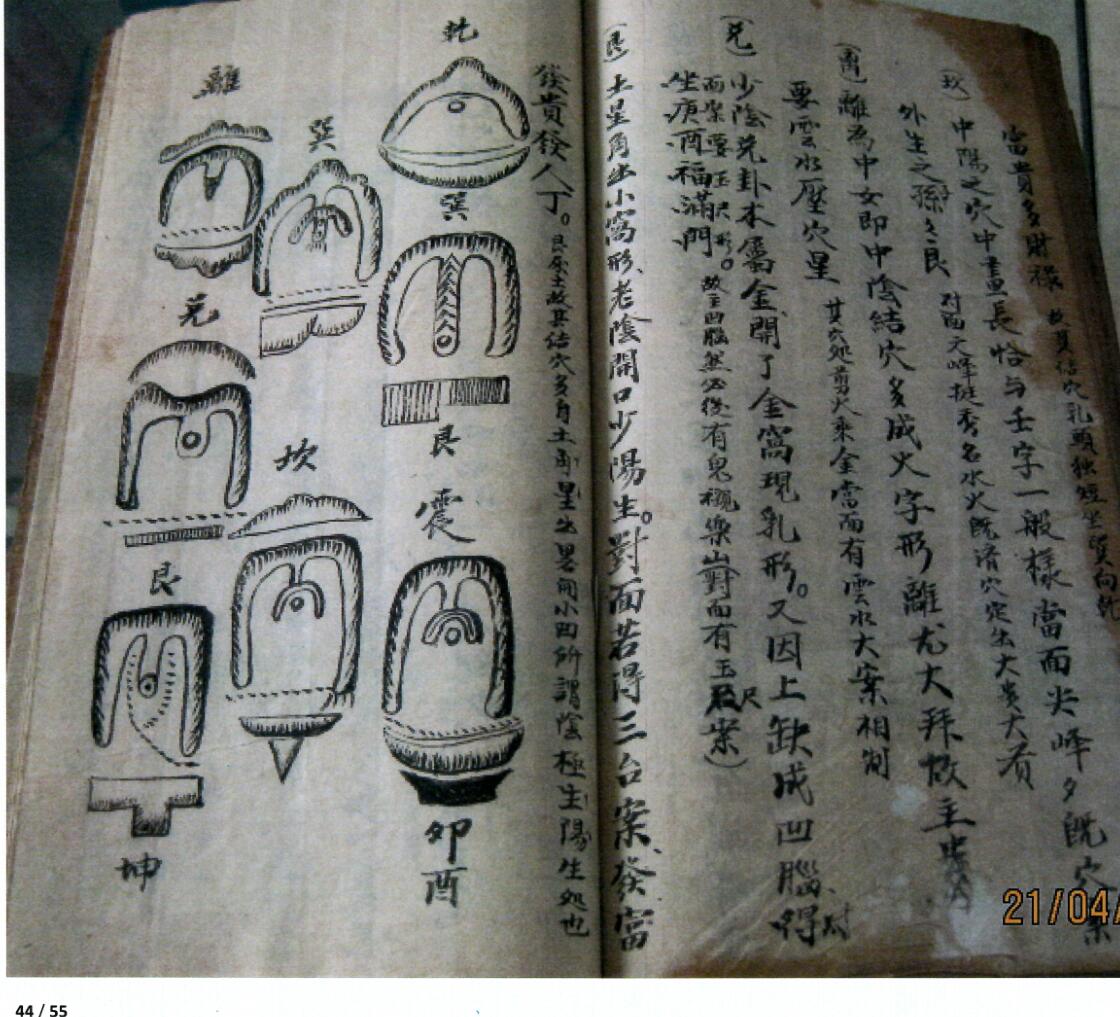 富貴多財祿 故其結穴乳頭獨短坐巽向乾
(坎) 中陽之穴中畫長恰与壬字一般樣當面尖峰夕既穴案
外生之孫 對面文峰挺秀名水火既濟穴定出大貴大者
(离) 離為中女即中陰結穴多成火字形離尤大拜故主
要雲水壓穴星 其穴処剪火乘金當面有雲水大案相制
(兌) 少陰兌卦本屬金開了金窩現乳形。又因上缺成凹腦得
而案要玉尺形。 故主凹腦然必後有鬼襯樂山對面有玉尺案)
坐庚酉福滿門
(艮) 土星角出小窩形老陰開口少陽生。對面若得三台案發富
發貴發人丁。 艮屬土故其結穴多身土星出略開小凹所謂陰極生陽生処也
乾
巽
離
巽
兌
艮
坎
震
艮
卯
酉
坤
21/04/
44 / 55